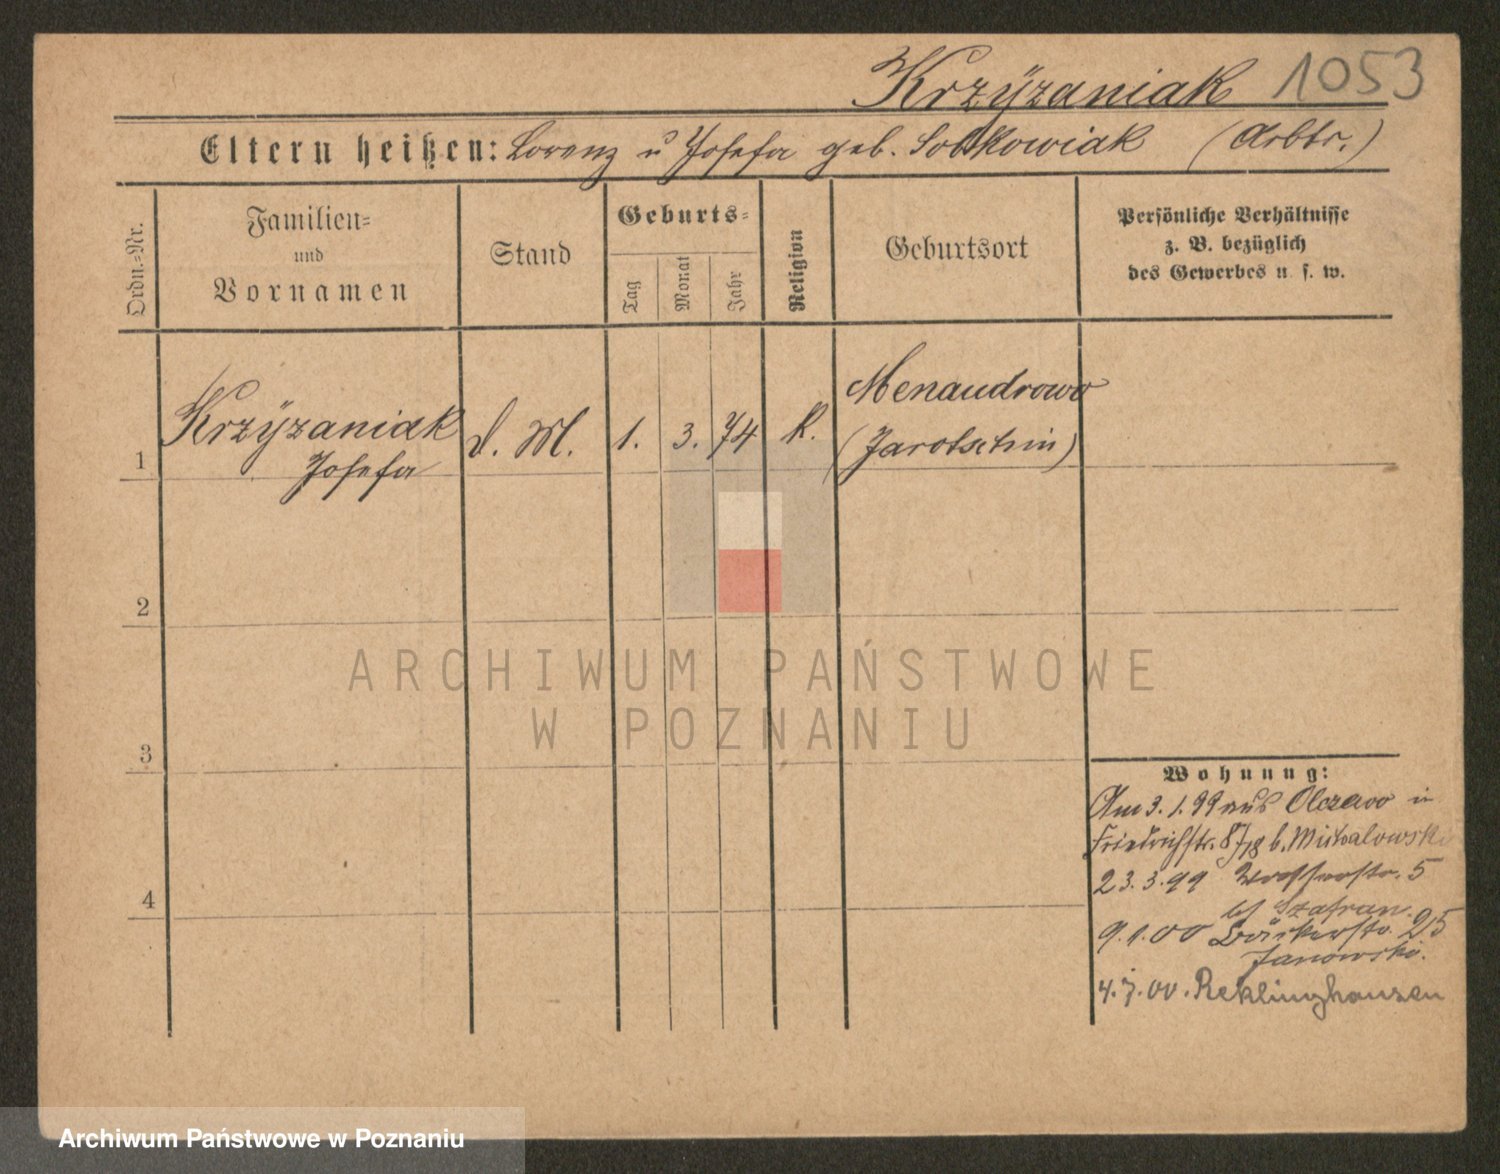 Krzÿzaniak 1053
Eltern heißen: Lorenz u Josefa geb. Sobkowiak (Arbtr.)
Ordn.-Nr.
Familien-
und
Vornamen
Stand
Geburts-
Tag
Monat
Jahr
Religion
Geburtsort
Persönliche Verhältnisse
z. B. bezüglich
des Gewerbes u. s. w.
1
Krzÿzaniak
Josefa
d. M.
1.
3.
74
k.
Menaudrowo
(Jarotschin)
2
ARCHIWUM PAŃSTWOWE
W POZNANIU
3
4
Wohnung:
Am 3.1.99 aus Olczewo in
Friedrichstr. b. Michalowski
23.3.99 Wasserstr. 5
bei Szafran.
9.1.00 Bäckerstr. 25
Janowski.
4.7.00. Reklinghausen
Archiwum Państwowe w Poznaniu